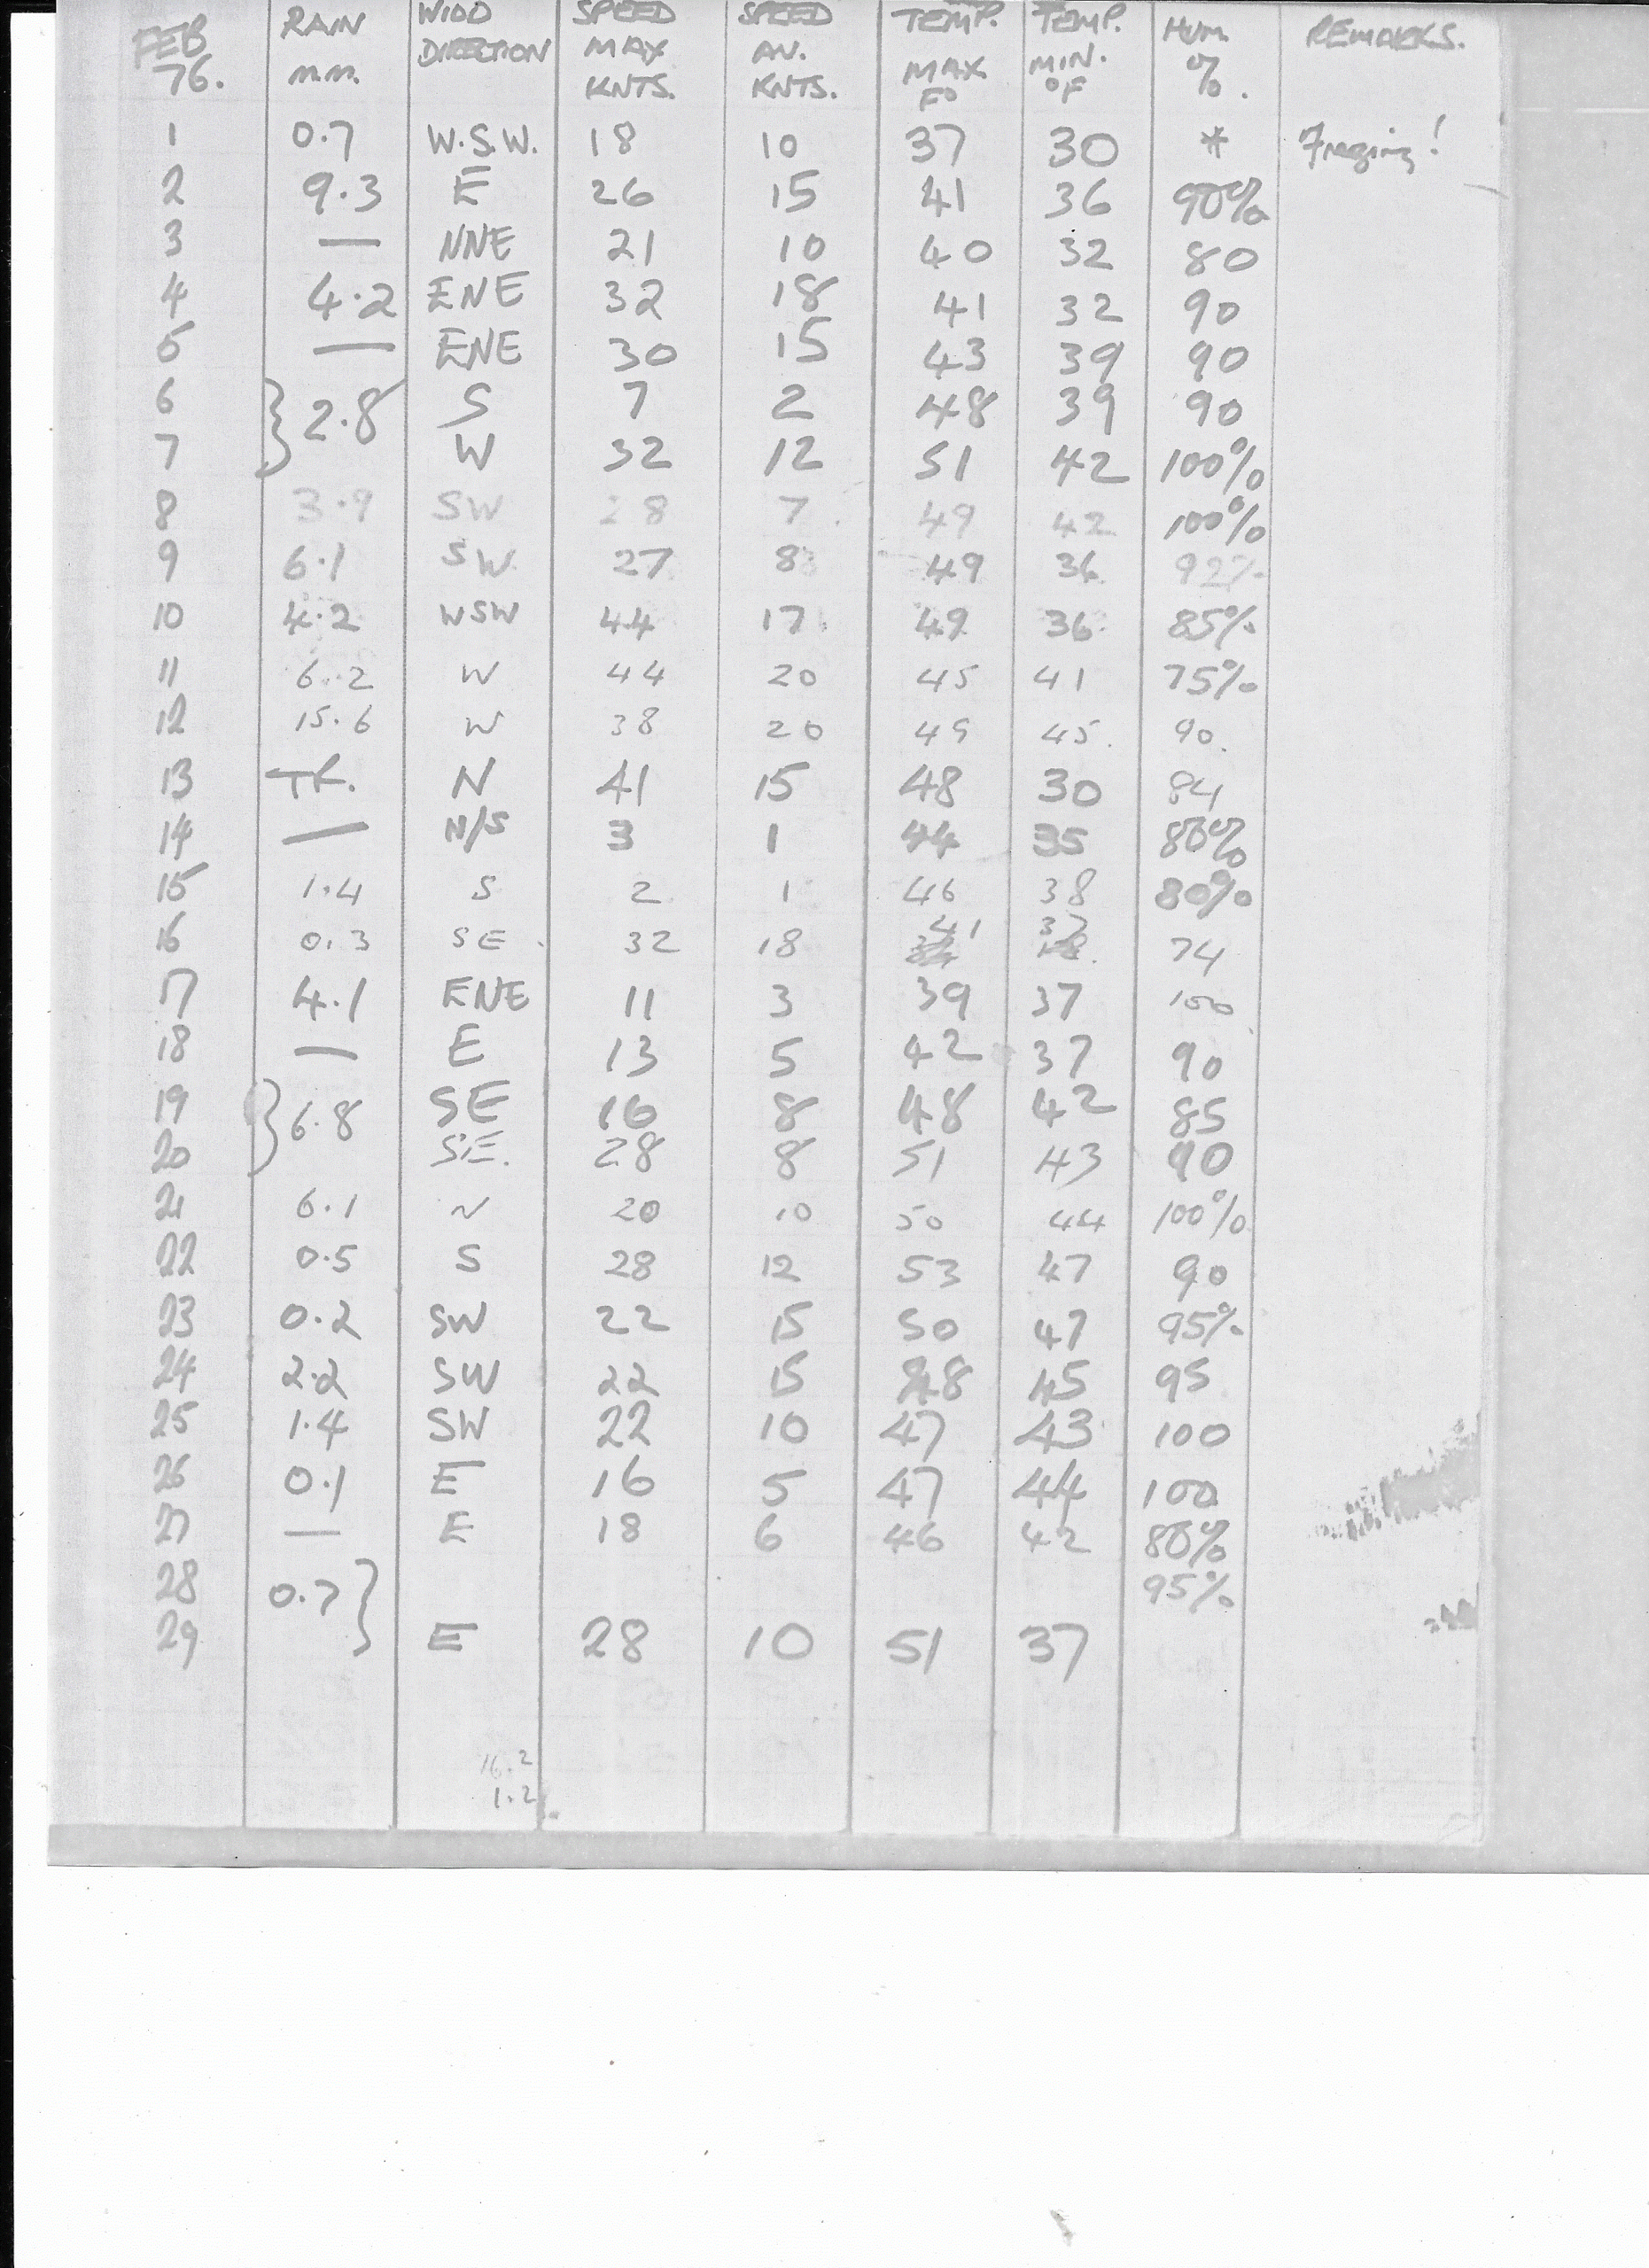 FEB 76. RAIN m.m. WIND DIRECTION SPEED MAX KNTS. SPEED AV. KNTS. TEMP. MAX F° TEMP. MIN. °F HUM. % REMARKS.
1 0.7 W.S.W. 18 10 37 30 * Freezing!
2 9.3 E 26 15 41 36 90%
3 — NNE 21 10 40 32 80
4 4.2 ENE 32 18 41 32 90
5 — ENE 30 15 43 39 90
6 } 2.8 S 7 2 48 39 90
7 W 32 12 51 42 100%
8 3.9 SW 28 7 49 42 100%
9 6.1 SW. 27 8 49 36 92%
10 4.2 WSW 44 17 49 36 85%
11 6.2 W 44 20 45 41 75%
12 15.6 W 38 20 49 45. 90.
13 Tr. N 41 15 48 30 84
14 — N/S 3 1 44 35 80%
15 1.4 S 2 1 46 38 80%
16 0.3 SE 32 18 41 37 74
17 4.1 ENE 11 3 39 37 100
18 — E 13 5 42 37 90
19 } 6.8 SE 16 8 48 42 85
20 SE. 28 8 51 43 90
21 6.1 N 20 10 50 44 100%
22 0.5 S 28 12 53 47 90
23 0.2 SW 22 15 50 47 95%
24 2.2 SW 22 15 48 45 95
25 1.4 SW 22 10 47 43 100
26 0.1 E 16 5 47 44 100
27 — E 18 6 46 42 80%
28 0.7 } 95%
29 E 28 10 51 37
16.2
1.2